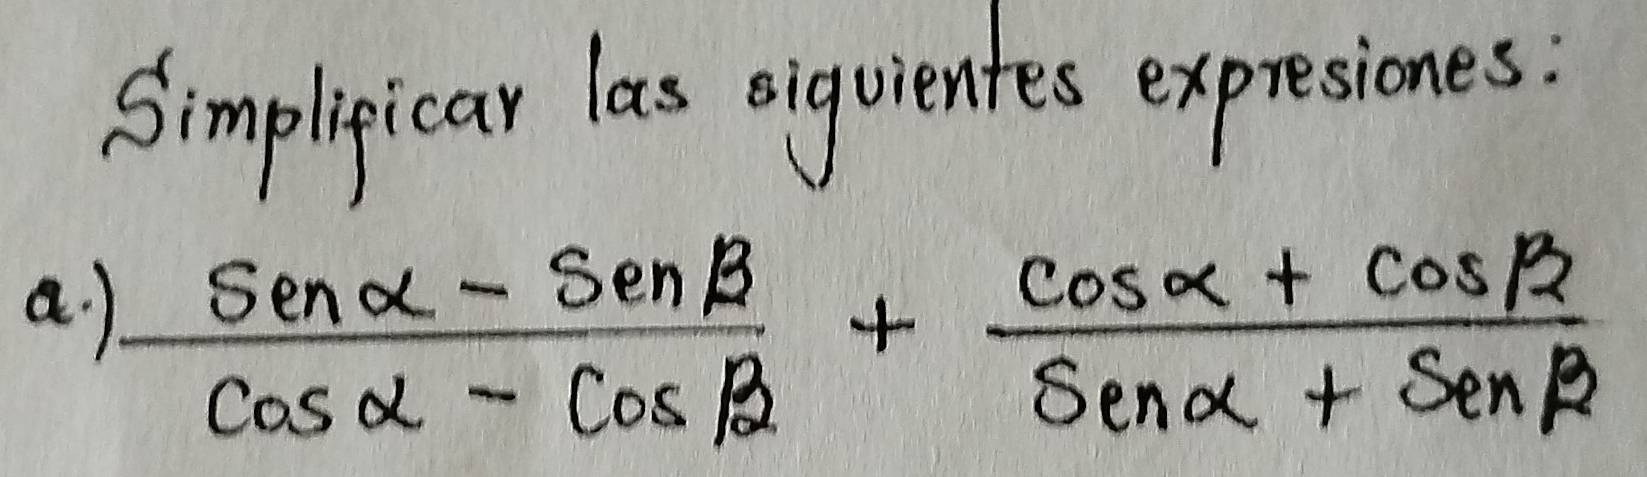 Simplificar las siguientes expresiones:
a.) Sen α - Sen β / Cos α - Cos β + Cos α + Cos β / Sen α + Sen β